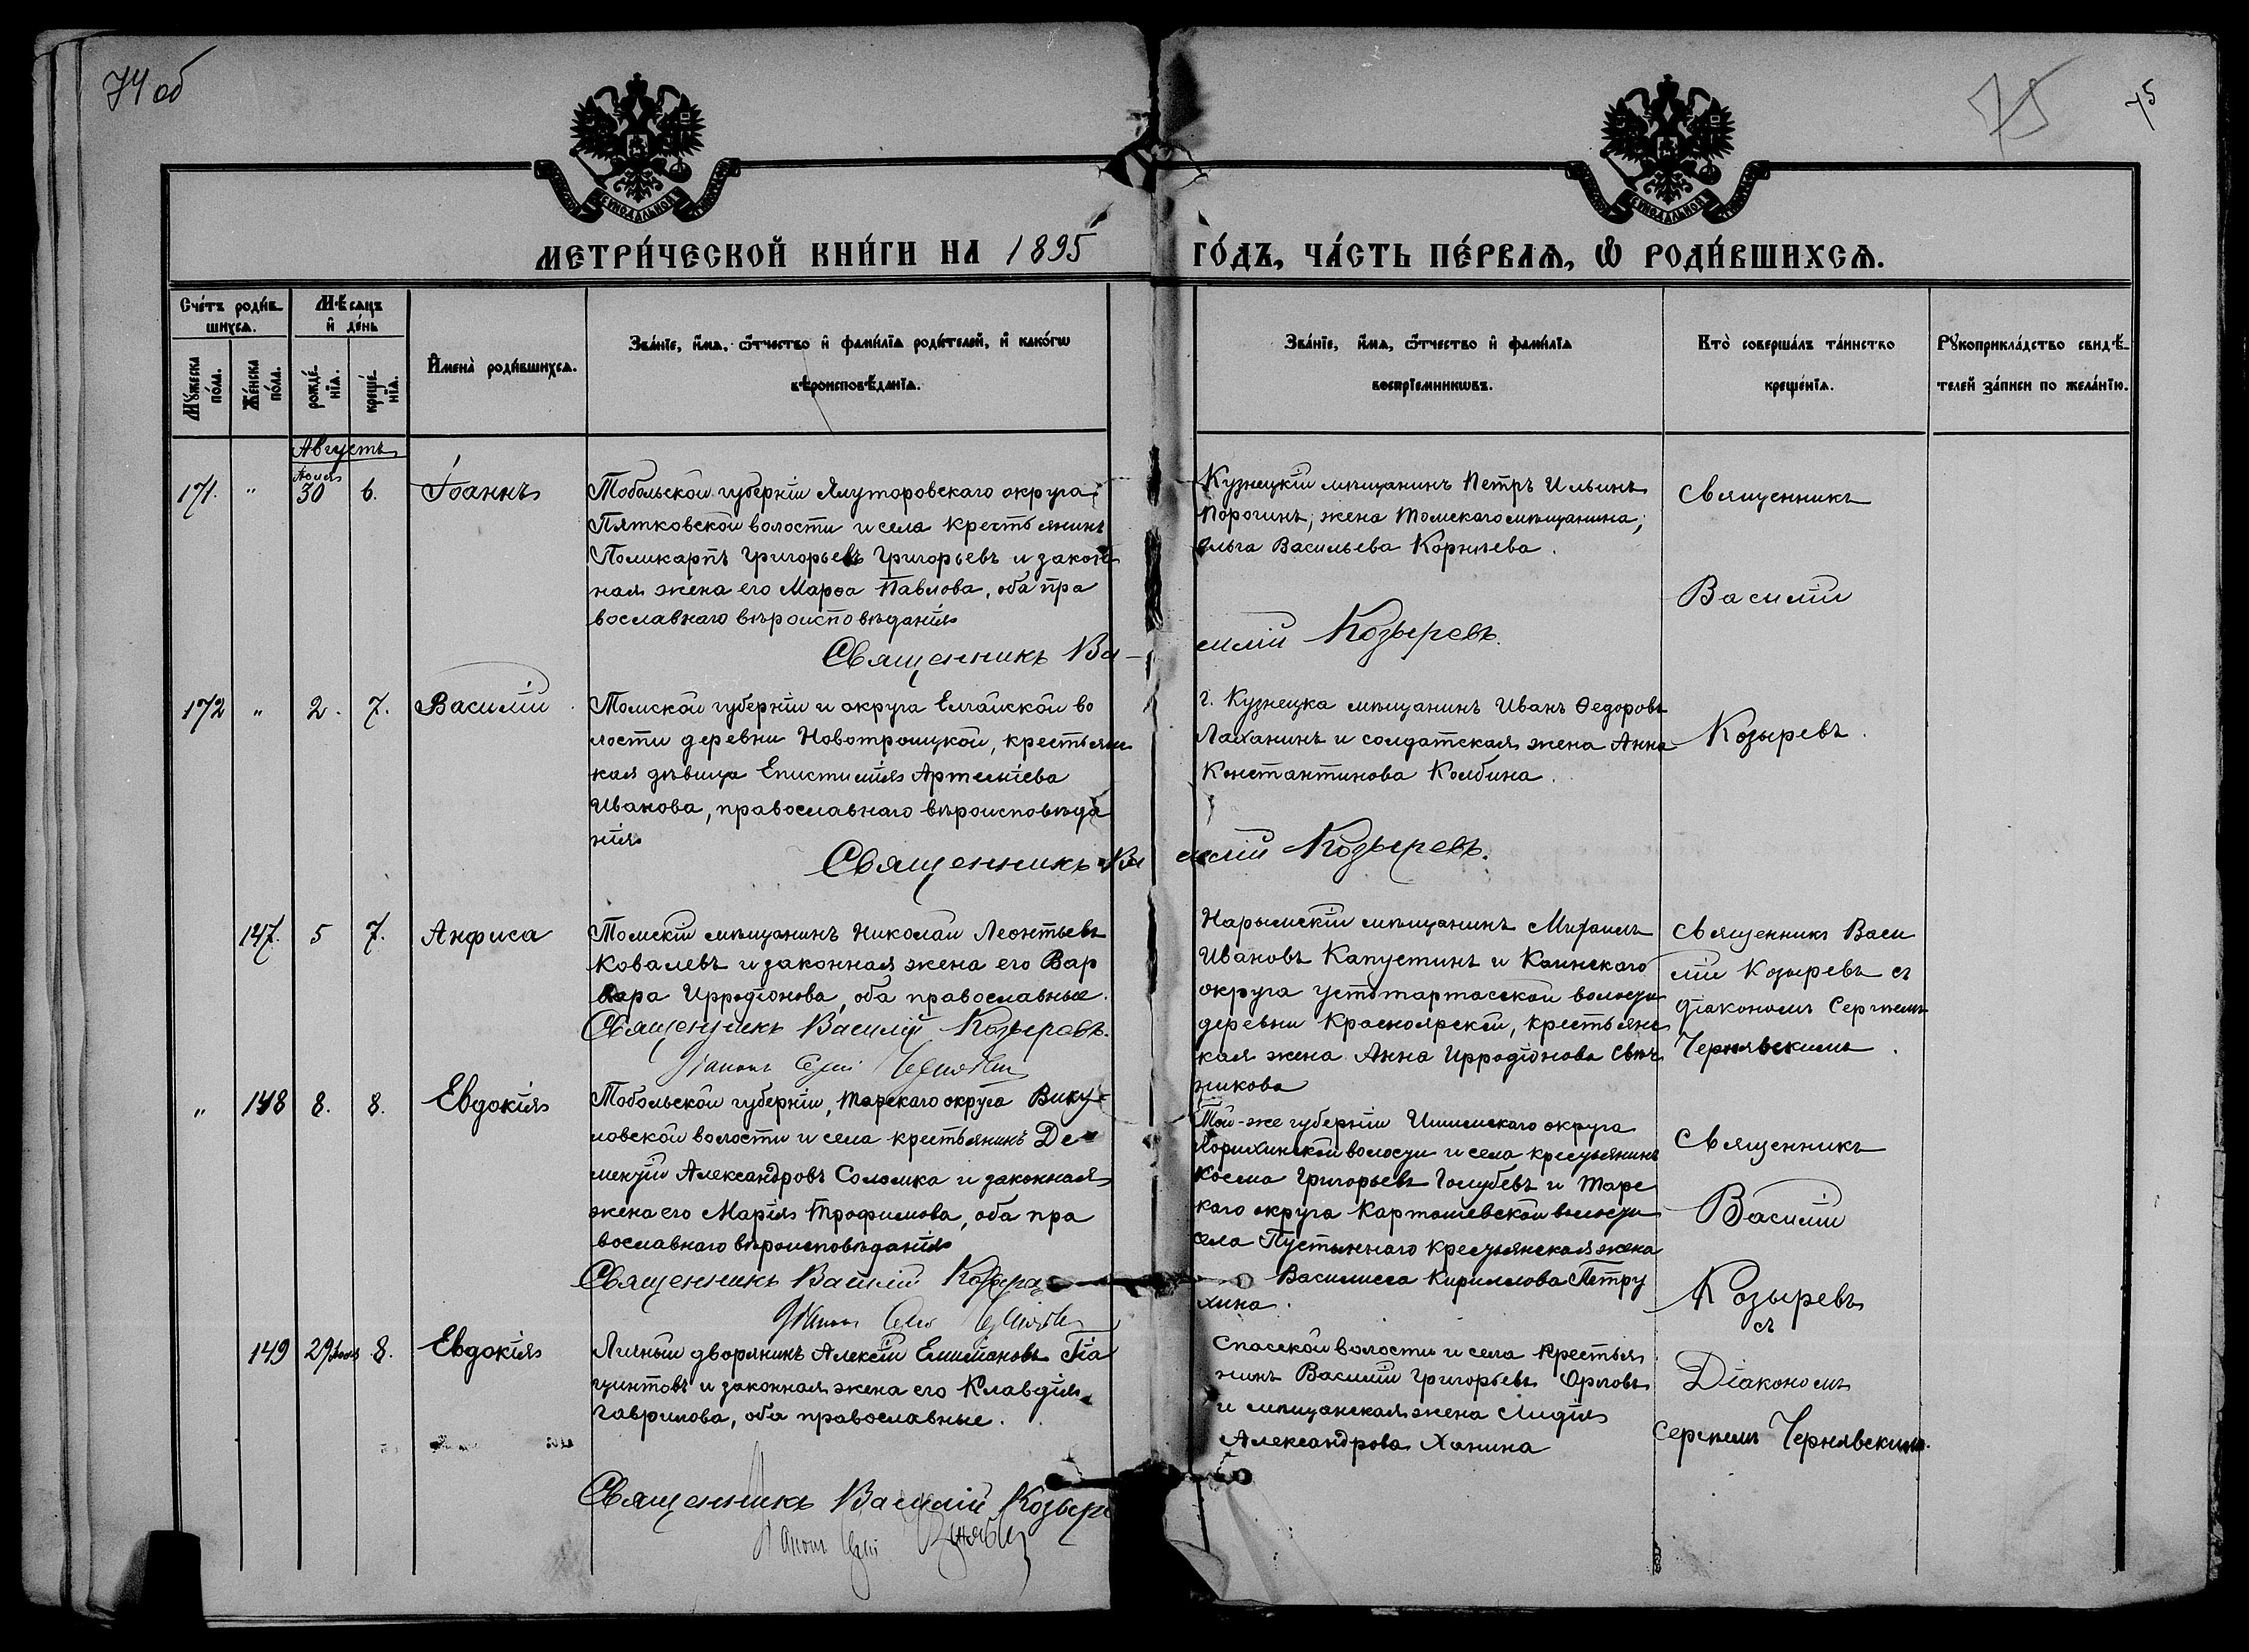 74 об
75
75
СѴНОДАЛЬНОЙ
СѴНОДАЛЬНОЙ
МЕТРИ́ЧЕСКОЙ КНИ́ГИ НА 1895
ГО́ДЪ, ЧА́СТЬ ПЕ́РВАѦ, Ѡ РОДИ́ВШИХСѦ.
Сче́тъ роди́в-
шихсѧ.
Мѣ́сѧцъ
и де́нь
Мꙋжеска по́ла.
Же́нска по́ла.
рожде́-
нїѧ.
креще́-
нїѧ.
Имена̀ роди́вшихсѧ.
Зва́нїе, и́мѧ, ѻ҆́тчество и фами́лїѧ роди́телей, и како́гѡ
вѣроисповѣ́данїѧ.
Зва́нїе, и́мѧ, ѻ҆́тчество и фами́лїѧ
воспрїе́мникѡвъ.
Кто̀ соверша́лъ та́инство
креще́нїѧ.
Рꙋкоприкла́дство свидѣ́-
телей за́писи по жела́нїю.
Августъ
171. " Іюля 30 6. Іоаннъ
Тобольской губерніи Ялуторовскаго округа
Пятковской волости и села крестьянинъ
Поликарпъ Григорьевъ Григорьевъ и закон
ная жена его Марѳа Павлова, оба пра
вославнаго вѣроисповѣданія
Кузнецкій мѣщанинъ Петръ Ильинъ
Порогинъ; жена томскаго мѣщанина,
Ольга Васильева Корнѣева.
Священникъ
Василій
Священникъ Ва-
силій Козыревъ.
172 " 2. 7. Василій
Томской губерніи и округа Елгайской во
лости деревни Новотроицкой, крестьянс
кая дѣвица Епистимія Артеміева
Иванова, православнаго вѣроисповѣда
нія
г. Кузнецка мѣщанинъ Иванъ Ѳедоровъ
Лаханинъ и солдатская жена Анна
Константинова Колбина.
Козыревъ.
Священникъ Ва
силій Козыревъ.
147. 5 7. Анфиса
Томскій мѣщанинъ Николай Леонтьевъ
Ковалевъ и законная жена его Вар
вара Иродіонова, оба православные.
Священникъ Василій Козыревъ.
Діаконъ Сергій Чернявскій
Нарымскій мѣщанинъ Михаилъ
Ивановъ Капустинъ и Каинскаго
округа Устьтартасской волости
деревни Красноярской, крестьянс
кая жена Анна Ирродіонова Свѣч
никова
Священникъ Васи
лій Козыревъ съ
діакономъ Сергіемъ
Чернявскимъ.
" 148 8. 8. Евдокія
Тобольской губерніи, Тарскаго округа Вику-
ловской волости и села крестьянинъ Де-
ментій Александровъ Соломка и законная
жена его Марія Трофимова, оба пра
вославнаго вѣроисповѣданія
Священникъ Василій Козырев
Діаконъ Сергій Чернявскій
Той-же губерніи Ишимскаго округа
волости и села крестьянинъ
Косма Григорьевъ Голубевъ и Тарс
каго округа Карташевской волости
села Пустыннаго крестьянская жена
Василисса Кириллова Петру
хина.
Священникъ
Василій
Козыревъ
съ
149 29 Іюля 8. Евдокія
Личный дворянинъ Алексій Гіа
цинтовъ и законная жена его Клавдія
Гаврилова, оба православные.
Спасской волости и села крестья
нинъ Василій Григорьевъ Орловъ
и мѣщанская жена Лидія
Александрова Ханина
Діакономъ
Сергіемъ Чернявскимъ.
Священникъ Василій Козыре
Діаконъ Сергій Чернявскій